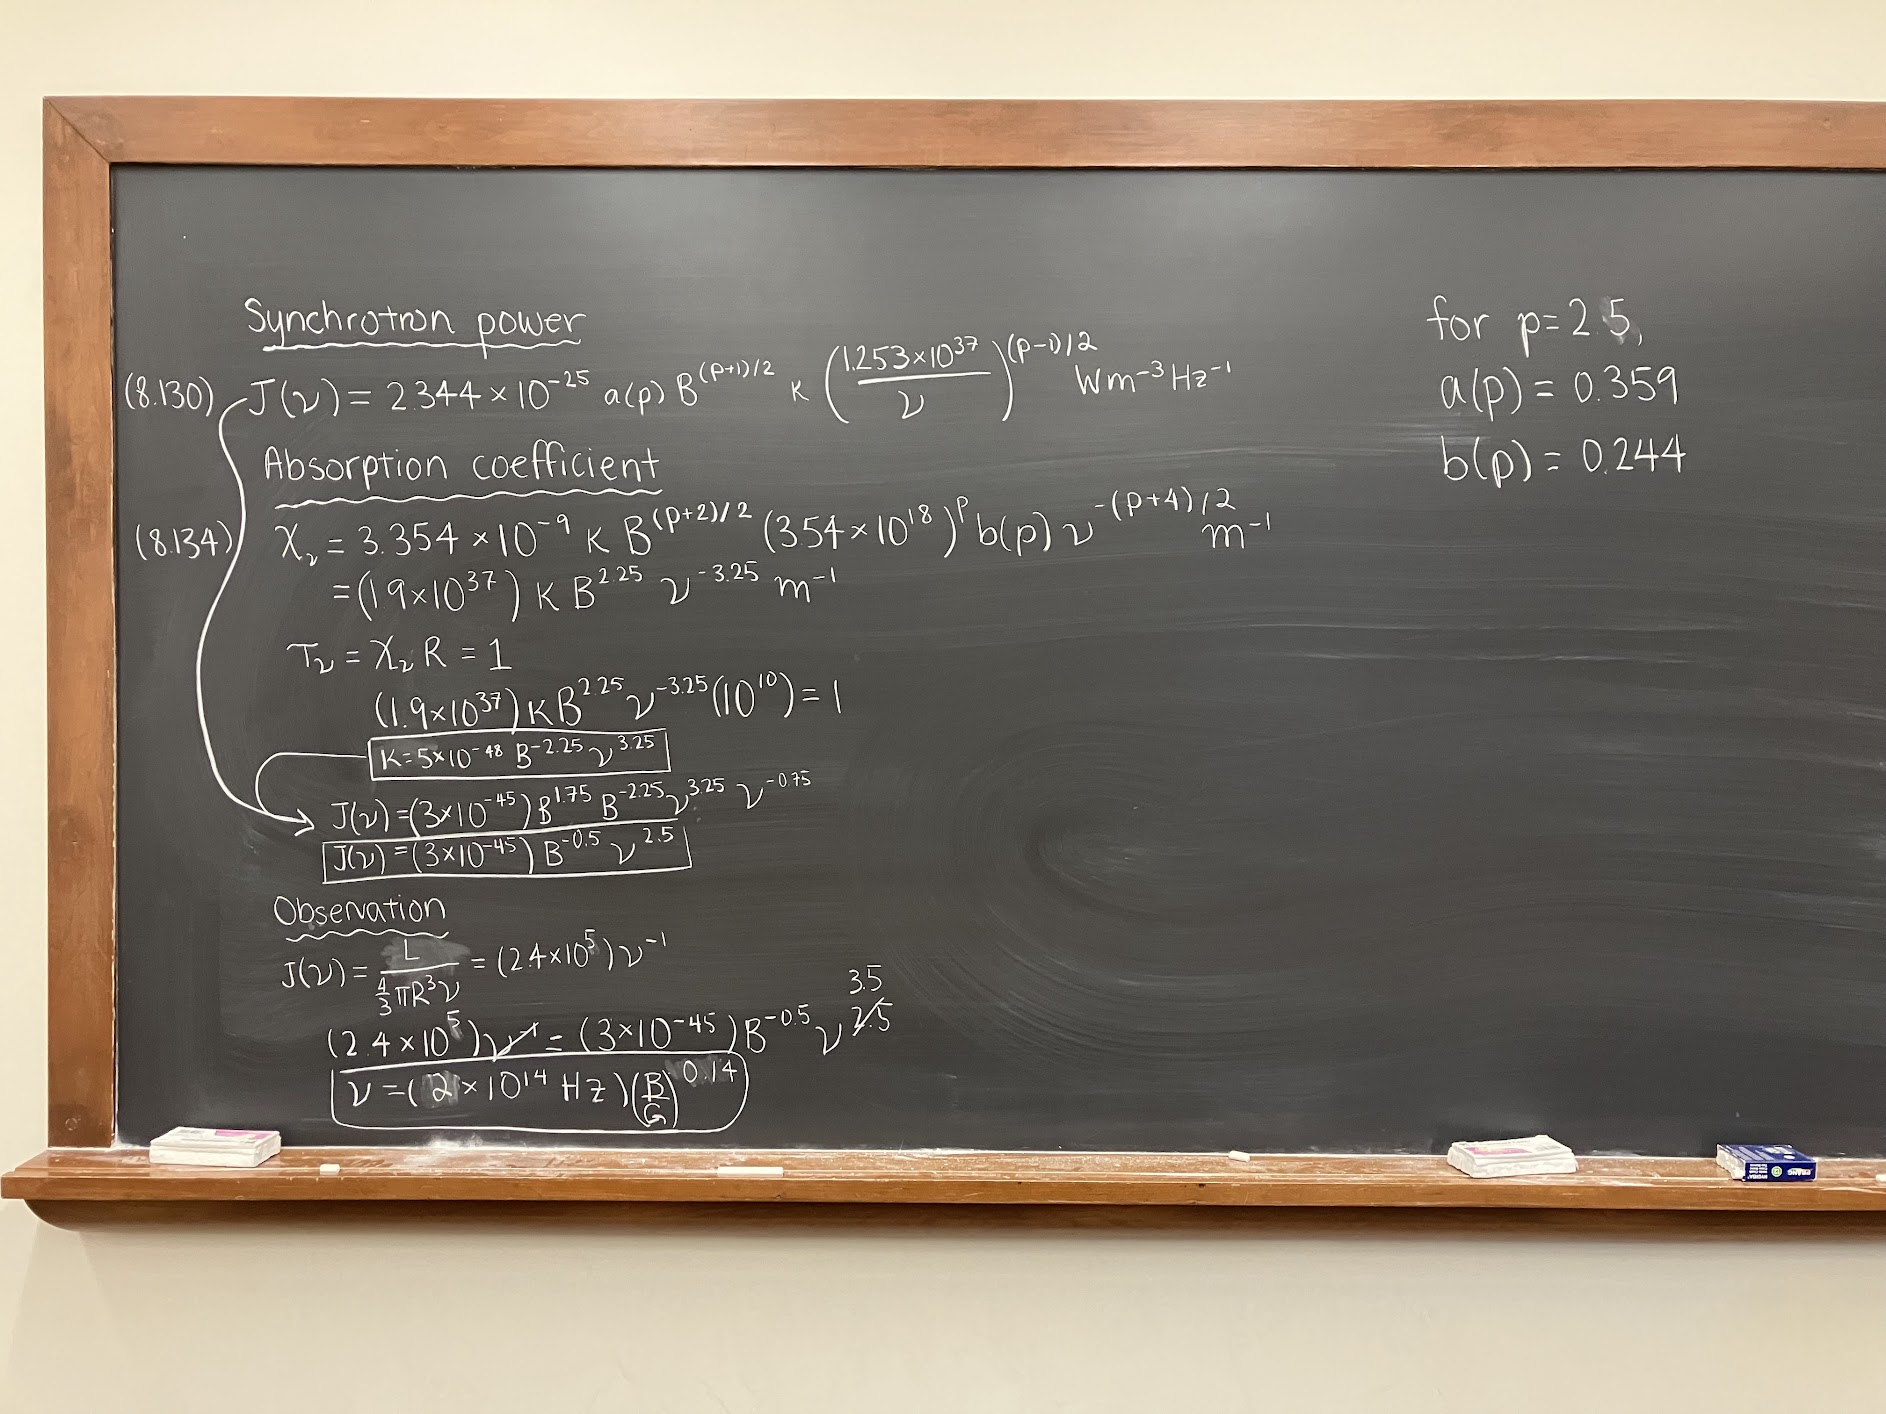 Synchrotron power
(8.130) J(ν) = 2.344 × 10^-25 a(p) B^(p+1)/2 κ (1.253×10^37 / ν)^(p-1)/2 Wm^-3 Hz^-1
Absorption coefficient
(8.134) χ_ν = 3.354 × 10^-9 κ B^(p+2)/2 (3.54×10^18)^p b(p) ν^-(p+4)/2 m^-1
= (1.9×10^37) κ B^2.25 ν^-3.25 m^-1
τ_ν = χ_ν R = 1
(1.9×10^37) κ B^2.25 ν^-3.25 (10^10) = 1
κ = 5×10^-48 B^-2.25 ν^3.25
J(ν) = (3×10^-45) B^1.75 B^-2.25 ν^3.25 ν^-0.75
J(ν) = (3×10^-45) B^-0.5 ν^2.5
Observation
J(ν) = L / (4/3 πR^3 ν) = (2.4×10^5) ν^-1
3.5
(2.4×10^5) ν^-1 = (3×10^-45) B^-0.5 ν^2.5
ν = (2×10^14 Hz) (B/G)^0.14
for p = 2.5,
a(p) = 0.359
b(p) = 0.244
PRANG